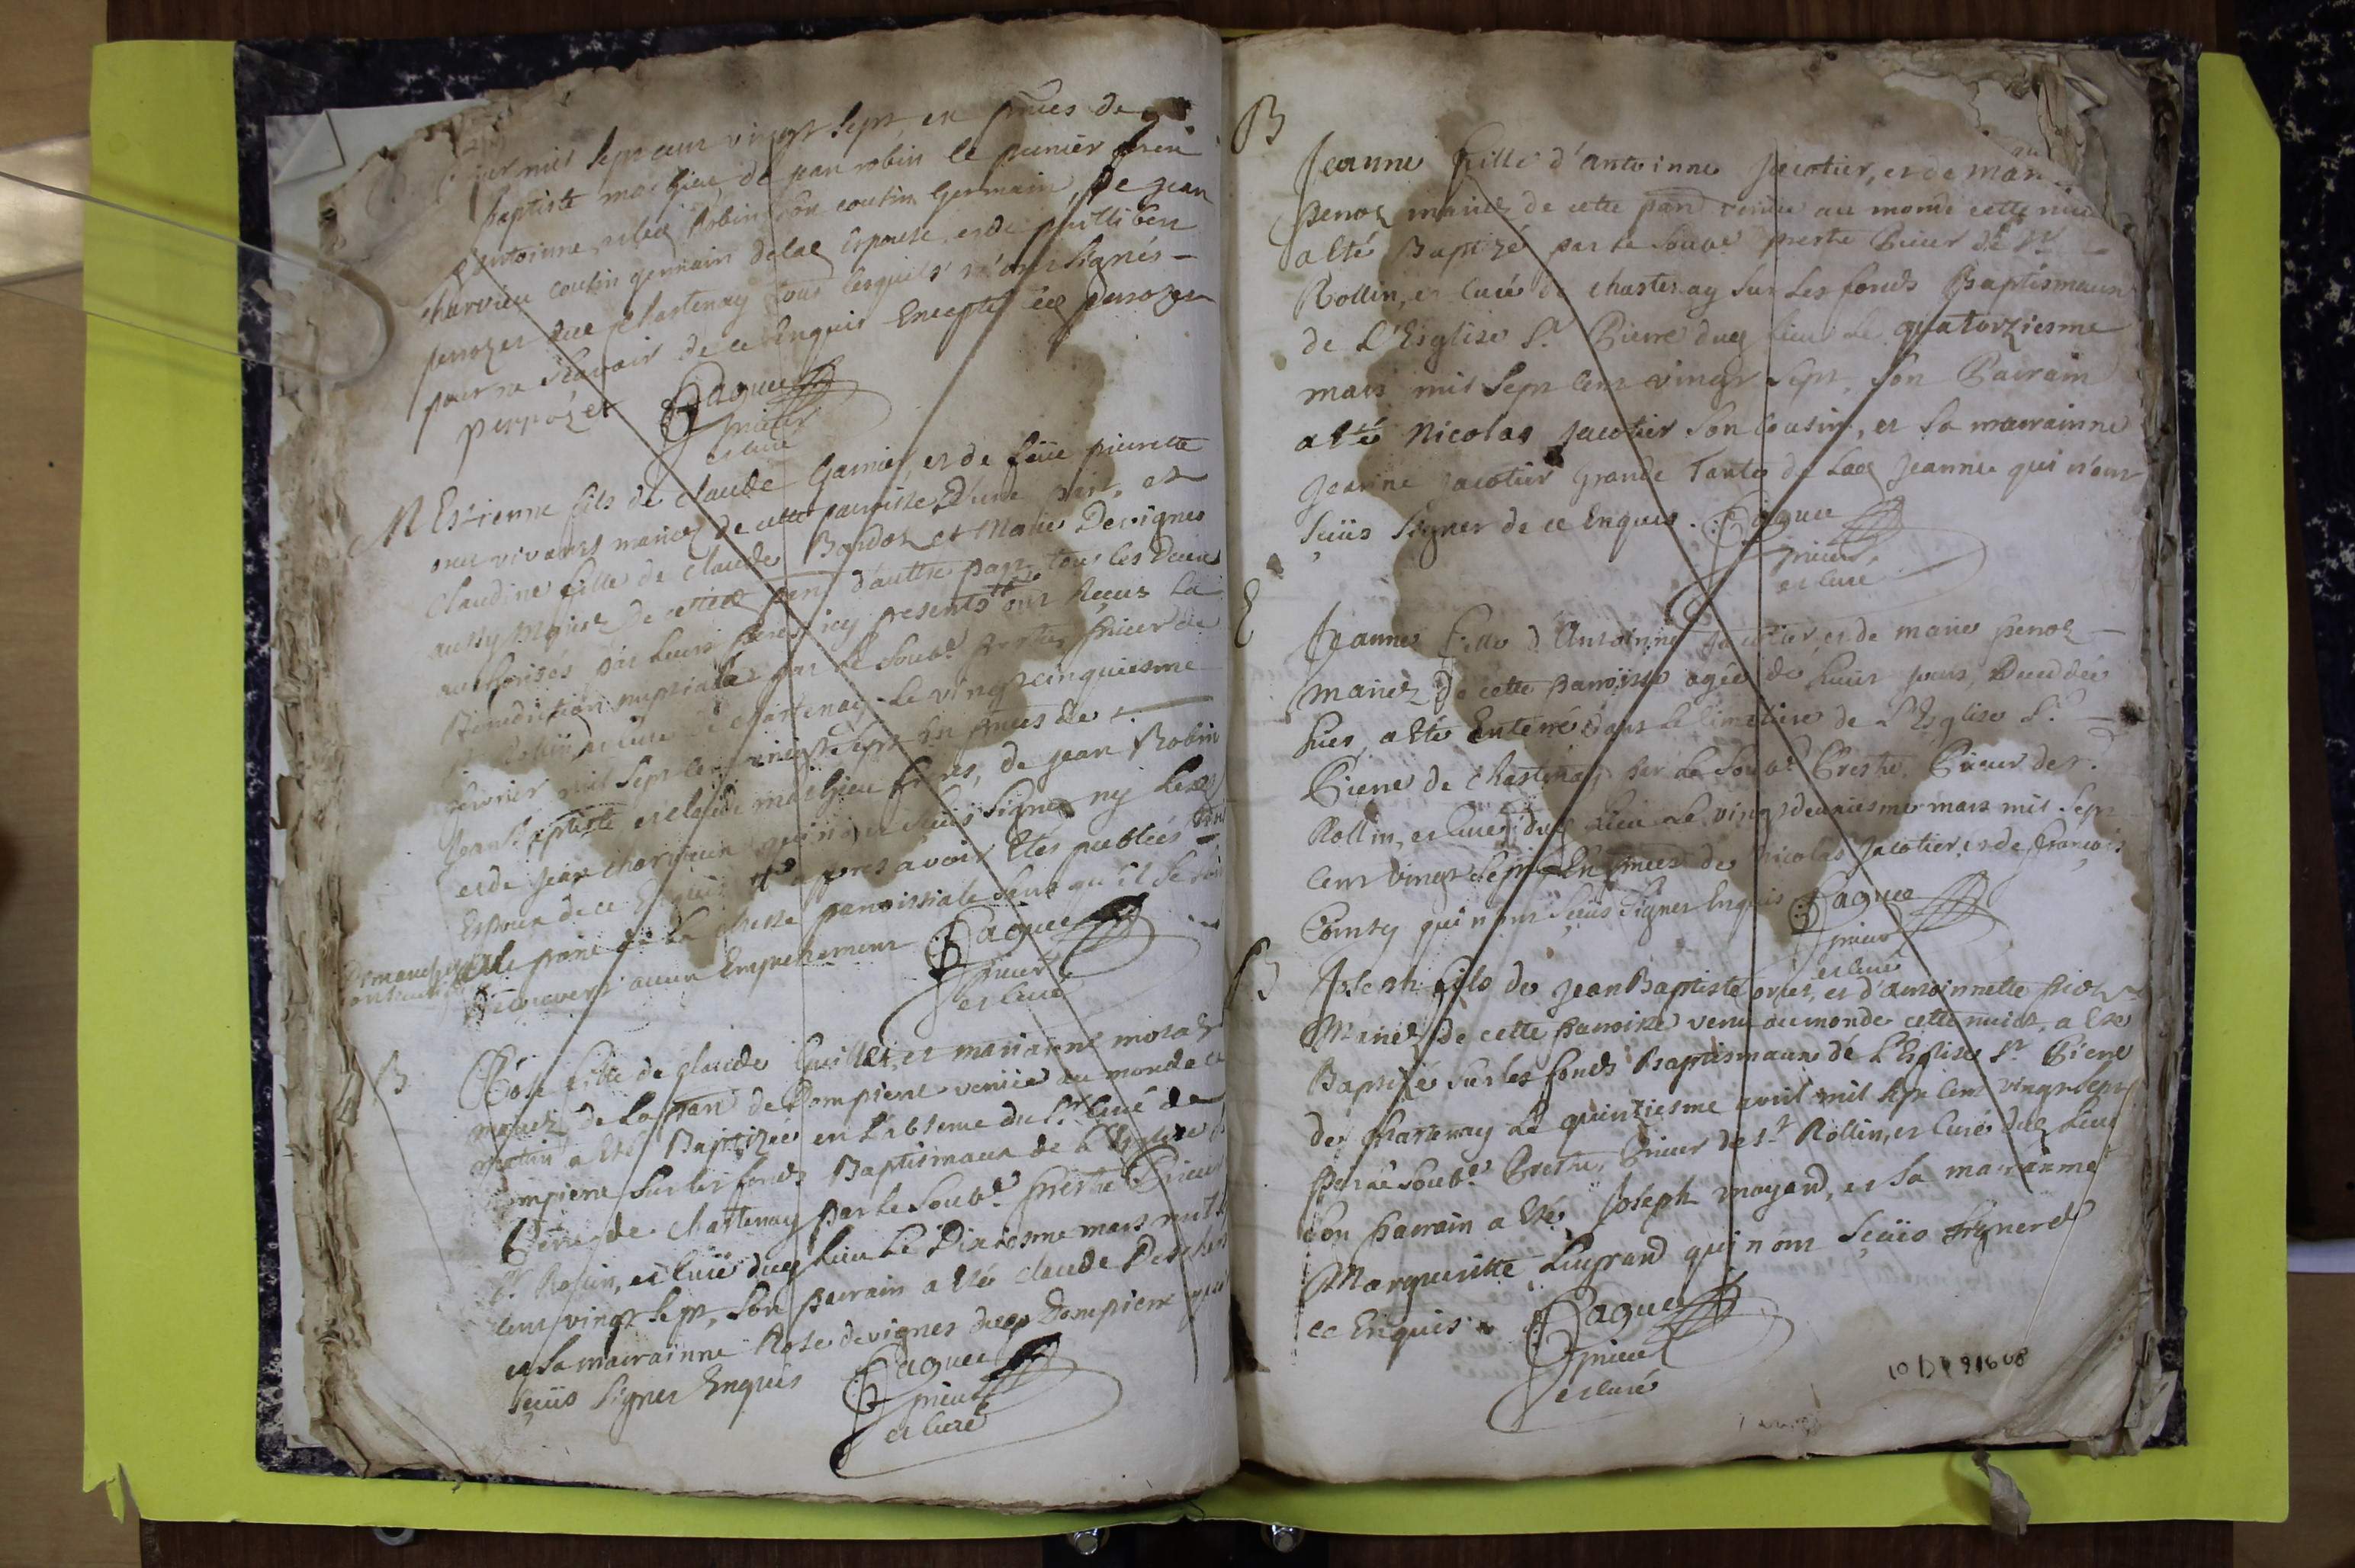 mil sept cent vingt sept, en pnces de
baptiste mathieu, de jean robin le premier frere
d'Antoinne, et led Robin son cousin germain, de jean
charvieu cousin germain delad Espouse, et de phillibert
perrozet dud Chastenay tous lesquels n'ont signés
pour ne sçavoir de ce Enquis Excepté led perrozet
perrozet Paguee
prieur
et curé
M Estienne fils de claude Garnier, et de feüe pierrette
mariez de cette parroisse d'une part, et
Claudine fille de claude Bardot et Marie Devignes
aussy mariez de cette par d'autre part tous les deux
authorisés par leurs peres icy presents ont Reçeus La
Benediction nuptiale par le Soubé prestre prieur de
Rollin, et curé de chastenay Le vingtcinquiesme
fevrier mil sept cent vingt sept En pnces de
Jean Baptiste et claude mathieu freres, de jean Robin
et de jean charvieux qui n'ont sçeus signer ny Lesd
Espoux de ce Enquis apres avoir Etés publiées
Dimanches au prone de la Messe parroissiale sans qu'il se soit
decouvert aucun Empechement Paguee
prieur
et curé
B Rose fille de claude Guillet, et marianne morat
mariez de La par de Dompierre venüe au monde ce
matin a Eté Baptizée en L'absence du Sr Curé de
ompierre sur les fonds Baptismaux de L'Eglise
Pierre de chastenay par Le Soubé prestre Prieur
Sr Rollin, et Curé dud Lieu Le Dixiesme mars mil
cent vingt sept, son parrain a Eté claude
et sa marrainne Rose devignes dud Dompierre
sçeüs signer Enquis Paguee
prieur
et curé
B
Jeanne fille d'Antoinne Jacotier, et de marie
Penot mariez de cette par venüe au monde cette nuit
a Eté Baptizé par le Soubé prestre Prieur de St
Rollin, et Curé de chastenay sur Les fonds Baptismaux
de L'Esglise St Pierre dud lieu Le quatorziesme
mars mil sept cent vingt sept, son Parrain
a Eté Nicolas Jacotier son Cousin, et sa marrainne
Jeanne Jacotier grande Tante de Lad Jeanne qui n'ont
sçeüs signer de ce Enquis. Paguee
prieur
et curé
E
Jeanne fille d'Antoinne Jacotier, et de marie penot
mariez de cette parroisse agée de huict jours, Deceddée
hier, a Eté Enterré dans Le Cimetiere de L'Esglise St
Pierre de Chastenay par Le Soubé Prestre, Prieur de St
Rollin, et Curé dud Lieu Le vingtdeuxiesme mars mil sept
cent vingt sept En pnces de Nicolas Jacotier, et de françois
Comty qui n'ont sçeüs signer Enquis Paguee
prieur
et curé
B Joseph fils de Jean Baptiste et d'antoinnette piot
Mariez de cette parroisse venu au monde cette nuict, a Eté
Baptizé sur les fonds Baptismaux de L'Eglise St Pierre
de chastenay Le quinziesme avril mil sept cent vingt sept
par Le Soubé Prestre, Prieur de St Rollin, et Curé dud Lieu
son parrain a Eté Joseph mayand, et sa marainne
Marguerite Lugrand qui n'ont Sçeüs Signer de
ce Enquis Paguee
prieur
et curé